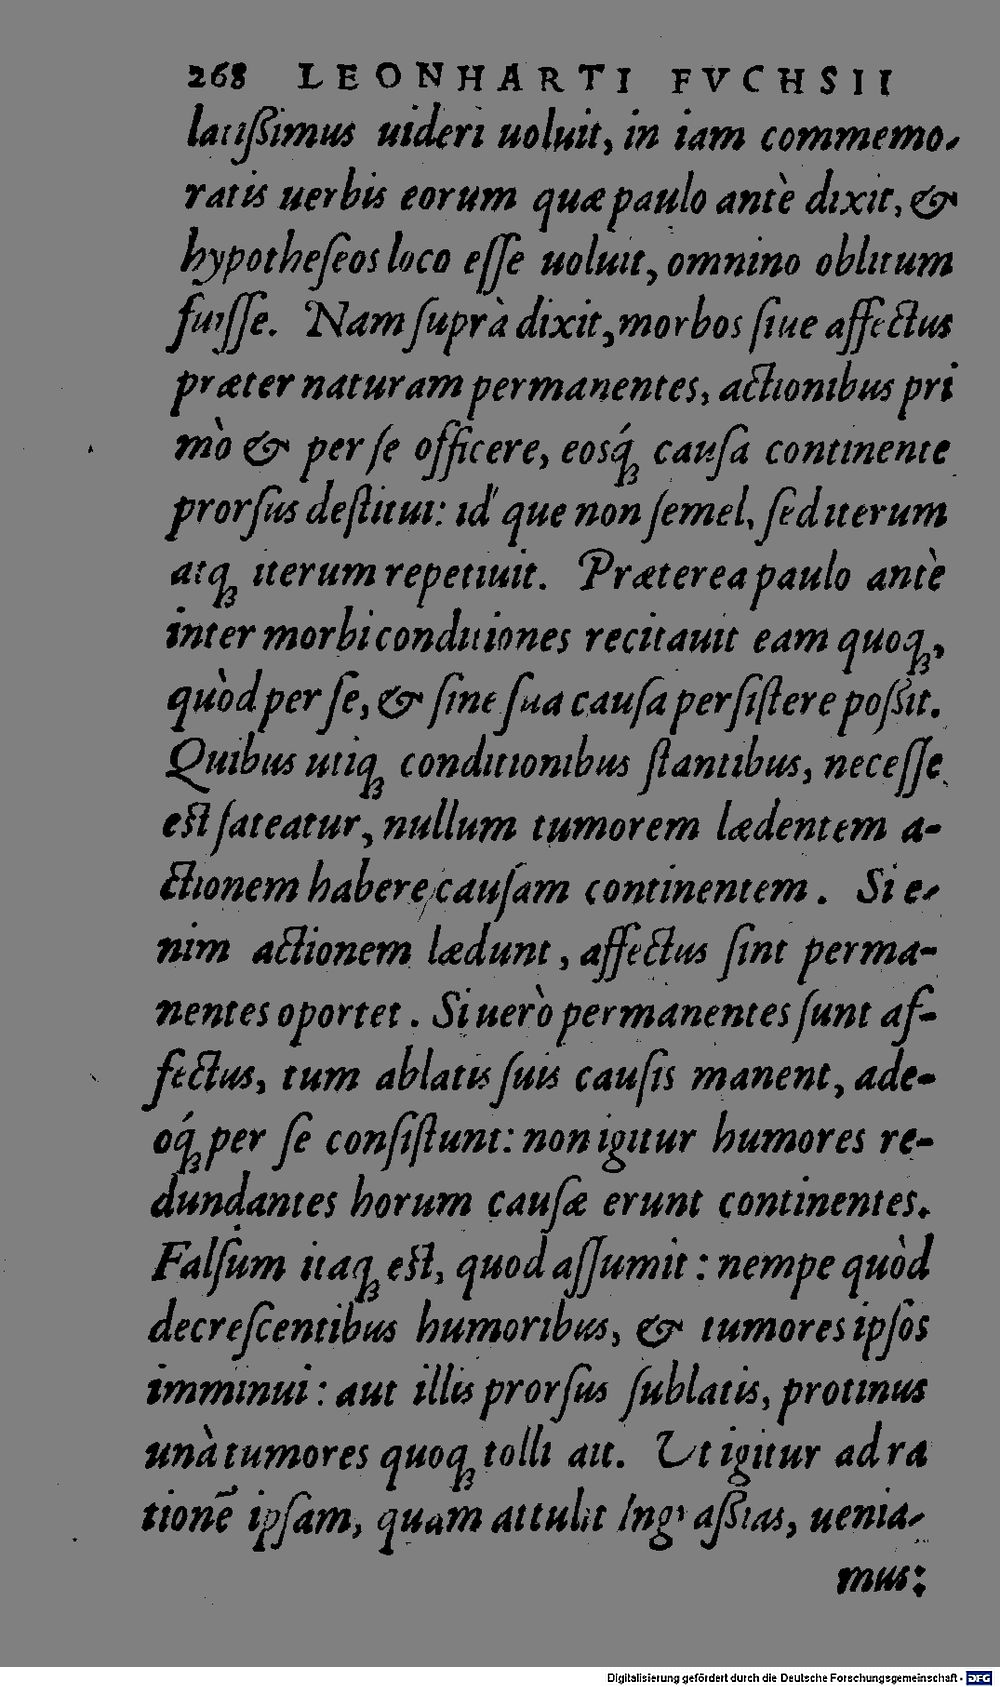 268 LEONHARTI FVCHSII
latißimus uideri uoluit, in iam commemo-
ratis uerbis eorum quæ paulo antè dixit, &
hypotheſeos loco eſſe uoluit, omnino oblitum
fuiſſe. Nam ſuprà dixit, morbos ſiue affectus
præter naturam permanentes, actionibus pri
mò & per ſe officere, eosq́ꝫ cauſa continente
prorſus deſtitui: id́ que non ſemel, ſed iterum
atqꝫ iterum repetiuit. Præterea paulo antè
inter morbi conditiones recitauit eam quoqꝫ,
quòd per ſe, & ſine ſua cauſa perſiſtere poßit.
Quibus utiqꝫ conditionibus ſtantibus, neceſſe
eſt fateatur, nullum tumorem lædentem a-
ctionem habere cauſam continentem. Si e-
nim actionem lædunt, affectus ſint perma-
nentes oportet. Si uerò permanentes ſunt af-
fectus, tum ablatis ſuis cauſis manent, ade-
oq́ꝫ per ſe conſiſtunt: non igitur humores re-
dundantes horum cauſæ erunt continentes.
Falſum itaqꝫ eſt, quod aſſumit: nempe quòd
decreſcentibus humoribus, & tumores ipſos
imminui: aut illis prorſus ſublatis, protinus
unà tumores quoqꝫ tolli ait. Ut igitur ad ra
tionē ipſam, quam attulit Ingraßias, uenia-
mus:
Digitalisierung gefördert durch die Deutsche Forschungsgemeinschaft - DFG